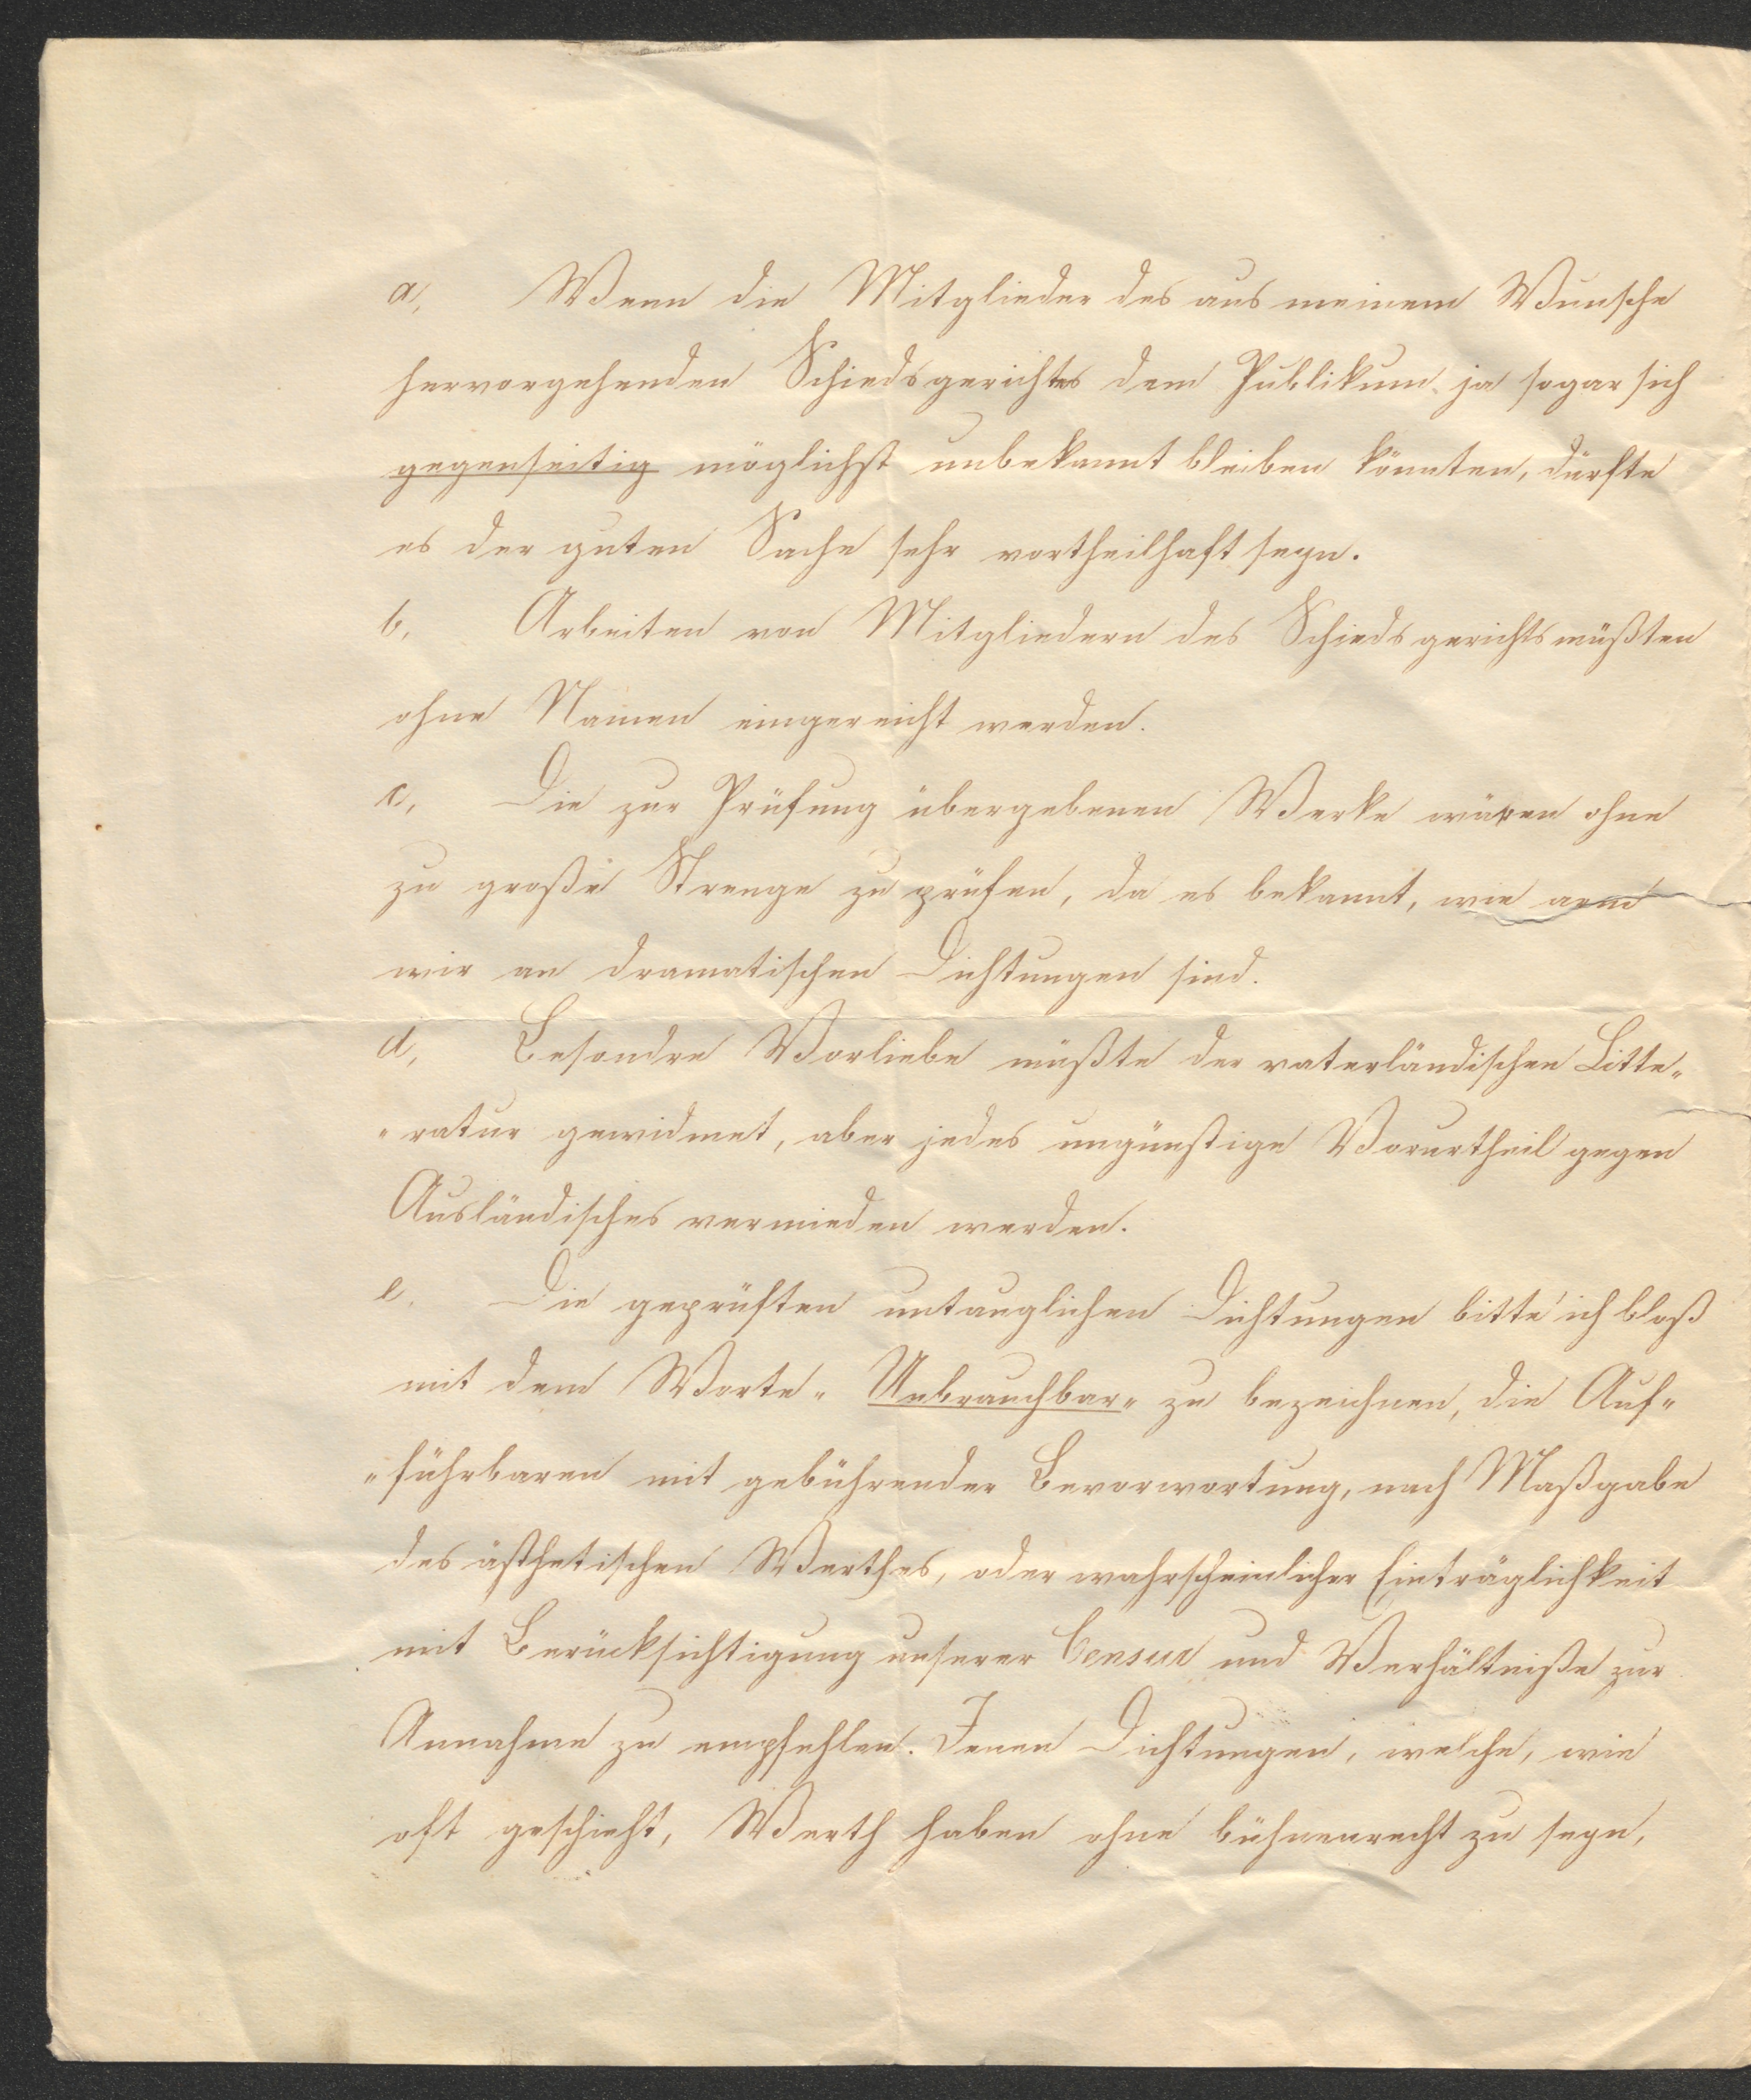 a, Wenn die Mitglieder des aus meinem Wunsche
hervorgehenden Schiedsgerichtes dem Publikum ja sogar sich
gegenseitig möglichst unbekannt bleiben könnten, dürfte
es der guten Sache sehr vortheilhaft seyn.
b, Arbeiten von Mitgliedern des Schiedsgerichts müßten
ohne Namen eingereicht werden.
c, Die zur Prüfung übergebenen Werke wären ohne
zu große Strenge zu prüfen, da es bekannt, wie arm
wir an dramatischen Dichtungen sind.
d, Besondre Vorliebe müßte der vaterländischen Litte„
„ratur gewidmet, aber jedes ungünstige Vorurtheil gegen
Ausländisches vermieden werden.
e, Die geprüften untauglichen Dichtungen bitte ich bloß
mit dem Worte „Unbrauchbar„ zu bezeichnen, die Auf„
„führbaren mit gebührender Bevorwortung, nach Maßgabe
des ästhetischen Werthes, oder wahrscheinlicher Einträglichkeit
mit Berücksichtigung unserer Censur und Verhältniße zur
Annahme zu empfehlen. Jenen Dichtungen, welche, wie
oft geschieht, Werth haben ohne bühnenrecht zu seyn,